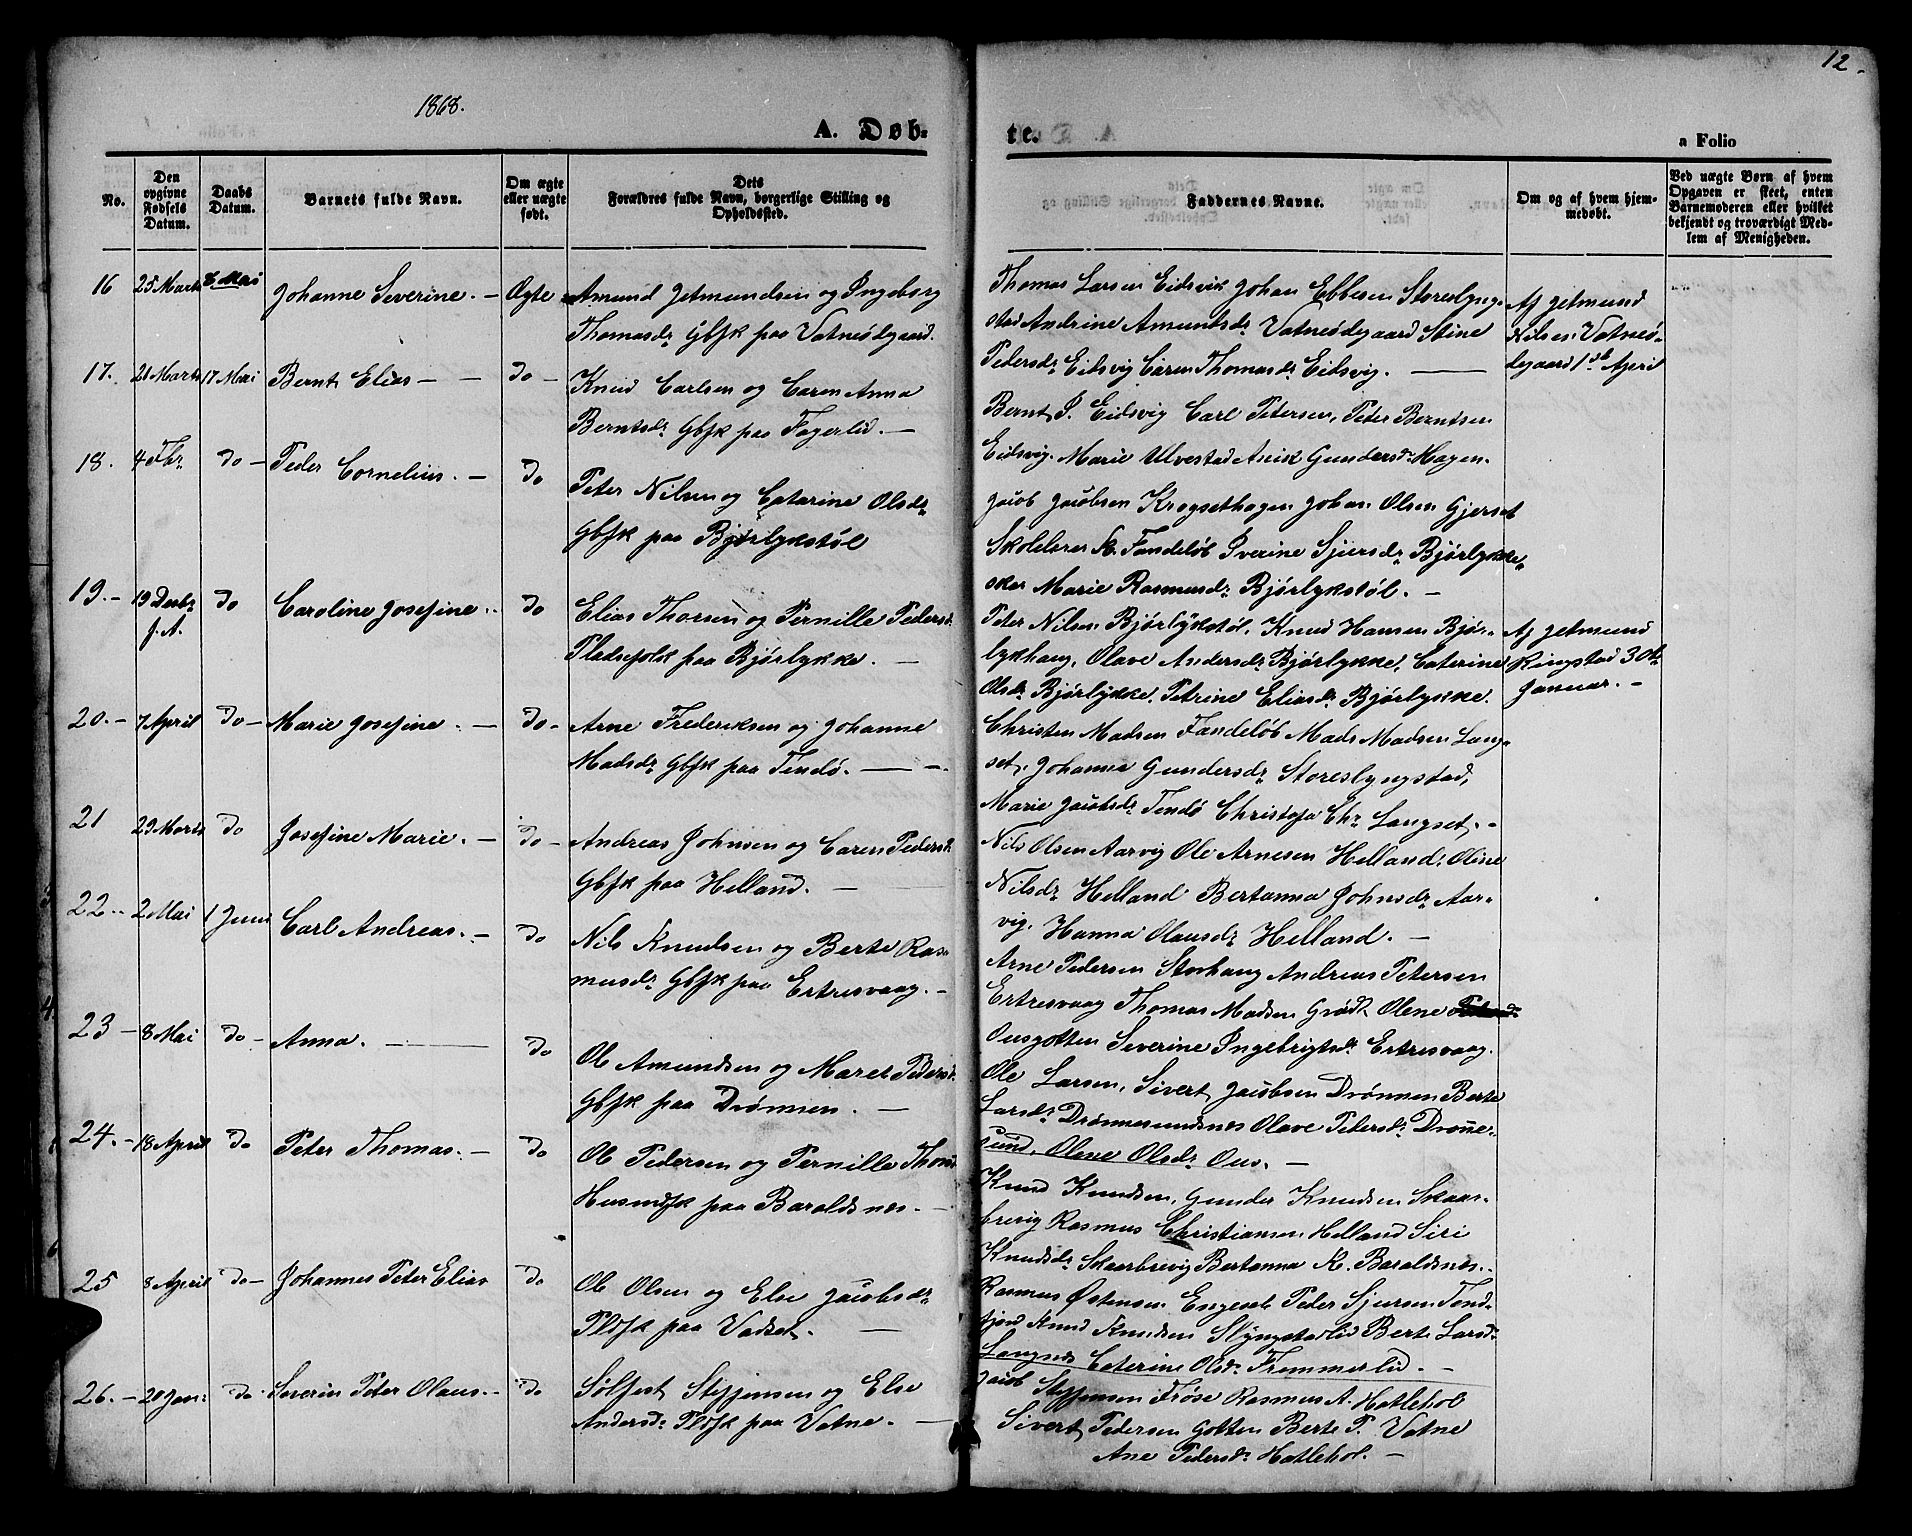 1868.
12.
A. Døb-
te.
a Folio
No.
Den opgivne Fødsels Datum.
Daabs Datum.
Barnets fulde Navn.
Om ægte eller uægte født.
Dets Forældres fulde Navn, borgerlige Stilling og Opholdssted.
Faddernes Navne.
Om og af hvem hjemmedøbt.
Ved uægte Børn af hvem Opgaven er skeet, enten Barnemoderen eller hvilket bekjendt og troværdigt Medlem af Menigheden.
16 25 Marts 8 Mai Johanne Severine. — Ægte Amund Jetmundsen og Ingeborg
Thomasdr Gbfk paa Vatneødegaard.
Thomas Larsen Eidsvik Johan Ebbesen Storeslyng-
stad Andrine Amundsdr Vatneødegaard Stine
Pedersdr Eidsvig Caren Thomasdr Eidsvig. —
Af Jetmund
Nilsen Vatneø-
degaard 1ste April
17. 21 Marts 17 Mai Bernt Elias — — Do — Knud Carlsen og Caren Anna
Berntsdr Gbfk paa Fagerlid. —
Bernt P. Eidsvig Carl Petersen, Peter Berntsen
Eidsvig. Marie Ulvestad Anik Gundersdr Hagen.
18. 4 Fbr Do — Peder Cornelius. — Do Peter Nilsen og Catarine Olsdr
Gbfk paa Bjørlykstøl
Jacob Jacobsen Krogsethagen Johan Olsen Gjerset
Skolelærer K. Fandeløb Iverine Sjursdr Bjørlykke-
Marie Rasmusdr Bjørlykstøl. —
19. — 19 Decbr f. A. Do Caroline Josefine. Do Elias Thorsen og Pernille Pedersdr
Pladsefolk paa Bjørlykke. —
Peter Nilsen Bjørlykstøl, Knud Hansen Bjør-
lykhaug, Olave Andersdr Bjørlykke, Caterine
Olsdr Bjørlykke, Petrine Eliasdr Bjørlykke.
Af Jetmund
Ringstad 30te
Januar. —
20. — 7 April Do — Marie Josefine. — Do — Arne Frederiksen og Johanne
Madsdr Gbfk paa Tendø. — —
Christen Madsen Fandeløb Mads Madsen Lang-
set, Johanna Gundersdr Storeslyngstad,
Marie Jacobsdr Tendø Christofa Chr Langset. —
21 29 Marts Do Josefine Marie. — Do — Andreas Johnsen og Caren Pedersdr
Gbfk paa Helland. —
Nils Olsen Aarvig Ole Arnesen Helland, Oline
Nilsdr Helland Bertanna Johnsdr Aar-
vig. Hanna Olausdr Helland. —
22. 2 Mai 1 Juni Carl Andreas. — Do Nils Knudsen og Berte Ras-
musdr Gbfk paa Ertresvaag. —
Arne Pedersen Storhaug Andreas Petersen
Ertresvaag Thomas Madsen Olene
Ousgotten Severine Ingebrigtsdr Ertresvaag.
23 — 8 Mai Do — Anna. — Do Ole Amundsen og Maret Pedersdr
Gbfk paa Drønnen. —
Ole Larsen, Sivert Jacobsen Drønnen Berte
Larsdr Drønnesundnes Olave Pedersdr Drønne-
sund, Olene Olsdr Ous. —
24. — 18 April Do Peter Thomas. — Do Ole Pedersen og Pernille Thomsdr
Husmfk paa Baraldsnes. —
Knud Knudsen, Gunder Knudsen Skaar-
brevig Rasmus Christiansen Helland Siri
Knudsdr Skaarbrevig Bertanna K. Baraldsnes. —
25 8 April Do — Johannes Peter Elias Do Ole Olsen og Else Jacobsdr
Pldfk paa Vadset. —
Rasmus Østensen Engeset Peder Sjursen Tend-
fjord Knud Knudsen Slyngstadlid Berte Larsdr
Langnes Caterine Olsdr Frommerlid. —
26. — 20 Jan: Do. Severin Peter Olaus. — Do Sølfest Steffensen og Else
Andersdr Pldfk paa Vatne. —
Jacob Steffensen Frøse Rasmus A. Hatlehol
Sivert Pedersen Gotten Berte P. Vatne
Ane Pedersdr Hatlehol. —